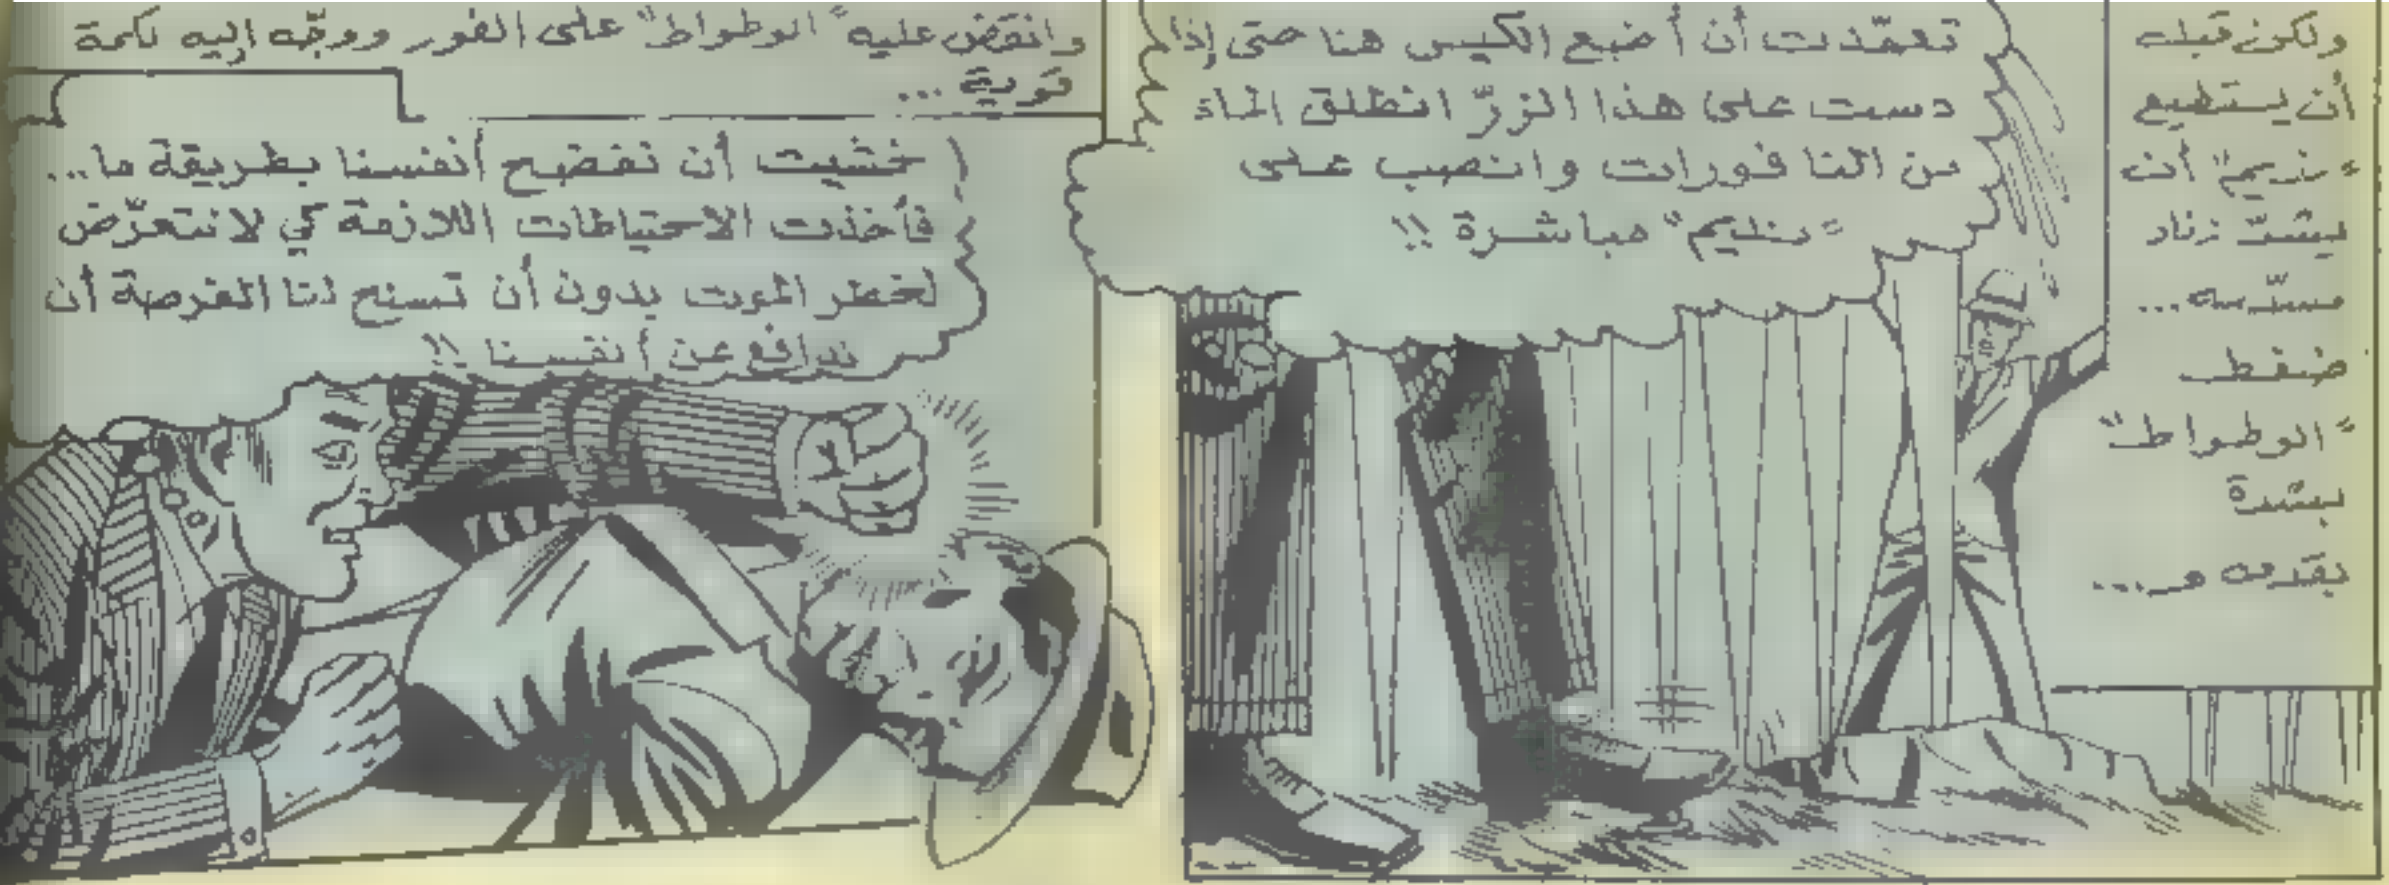 ولكن قبل
أن يستطيع
"سليم" أن
يشدّ زناد
مسدّسه...
ضغط
"الوطواط"
بشدة
بقدمه و...
تعمّدت أن أضع الكيس هنا حتى إذا
دست على هذا الزرّ انطلق الماء
من النافورات وانصب على
"سليم" مباشرة !!
وانقض عليه "الوطواط" على الفور ووجّه إليه لكمة
قوية ...
خشيت أن نفضح أنفسنا بطريقة ما...
فأخذت الاحتياطات اللازمة كي لا نتعرّض
لخطر الموت بدون أن تسنح لنا الفرصة أن
ندافع عن أنفسنا !!